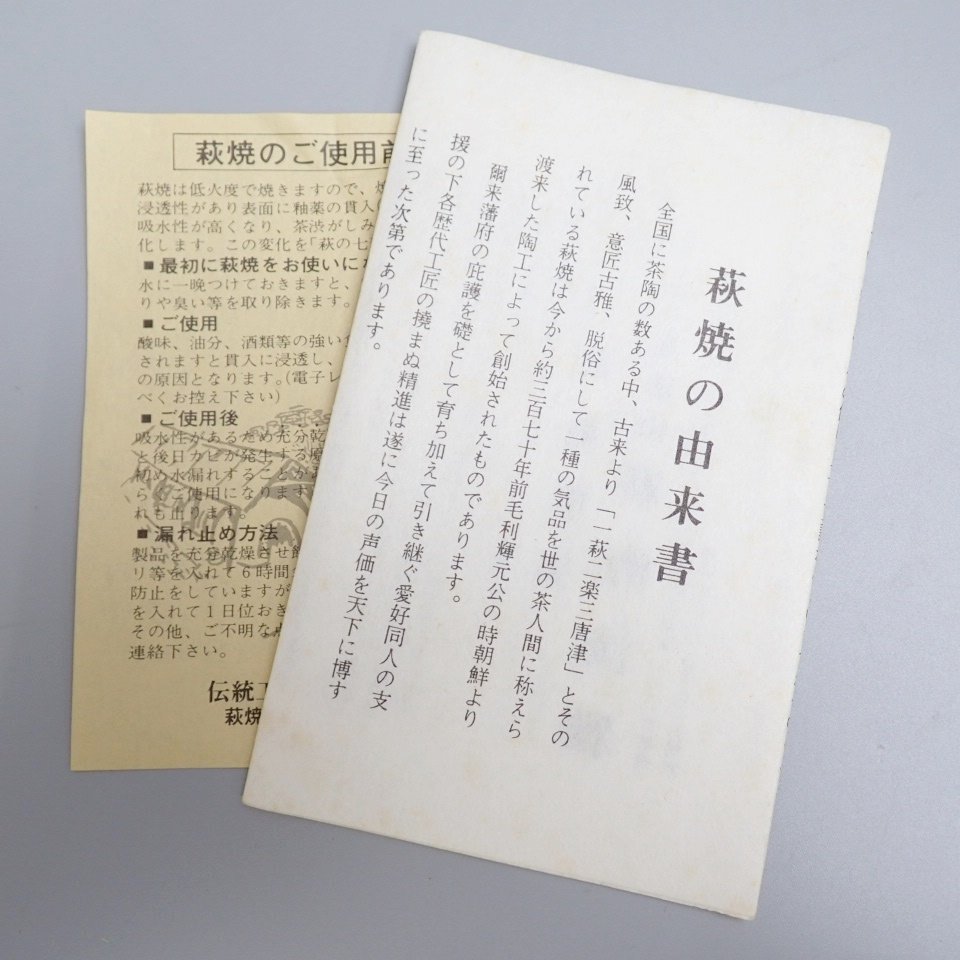 萩焼の由来書
全国に茶陶の数ある中、古来より「一萩二楽三唐津」とその
風致、意匠古雅、脱俗にして一種の気品を世の茶人間に称えら
れている萩焼は今から約三百七十年前毛利輝元公の時朝鮮より
渡来した陶工によって創始されたものであります。
爾来藩府の庇護を礎として育ち加えて引き継ぐ愛好同人の支
援の下各歴代工匠の撓まぬ精進は遂に今日の声価を天下に博す
に至った次第であります。
萩焼のご使用前
萩焼は低火度で焼きますので、
浸透性があり表面に釉薬の貫入
吸水性が高くなり、茶渋がしみ
化します。この変化を「萩の七
■最初に萩焼をお使いにな
水に一晩つけておきますと、
りや臭い等を取り除きます。
■ご使用
酸味、油分、酒類等の強い
されますと貫入に浸透し、
の原因となります。(電子レ
べくお控え下さい)
■ご使用後
吸水性があるため充分乾
と後日カビが発生する原
初め水漏れすることが
ら、ご使用になります
れも止ります。
■漏れ止め方法
製品を充分乾燥させ
リ等を入れて6時間
防止をしていますが
を入れて1日位おき
その他、ご不明な点
連絡下さい。
伝統工
萩焼